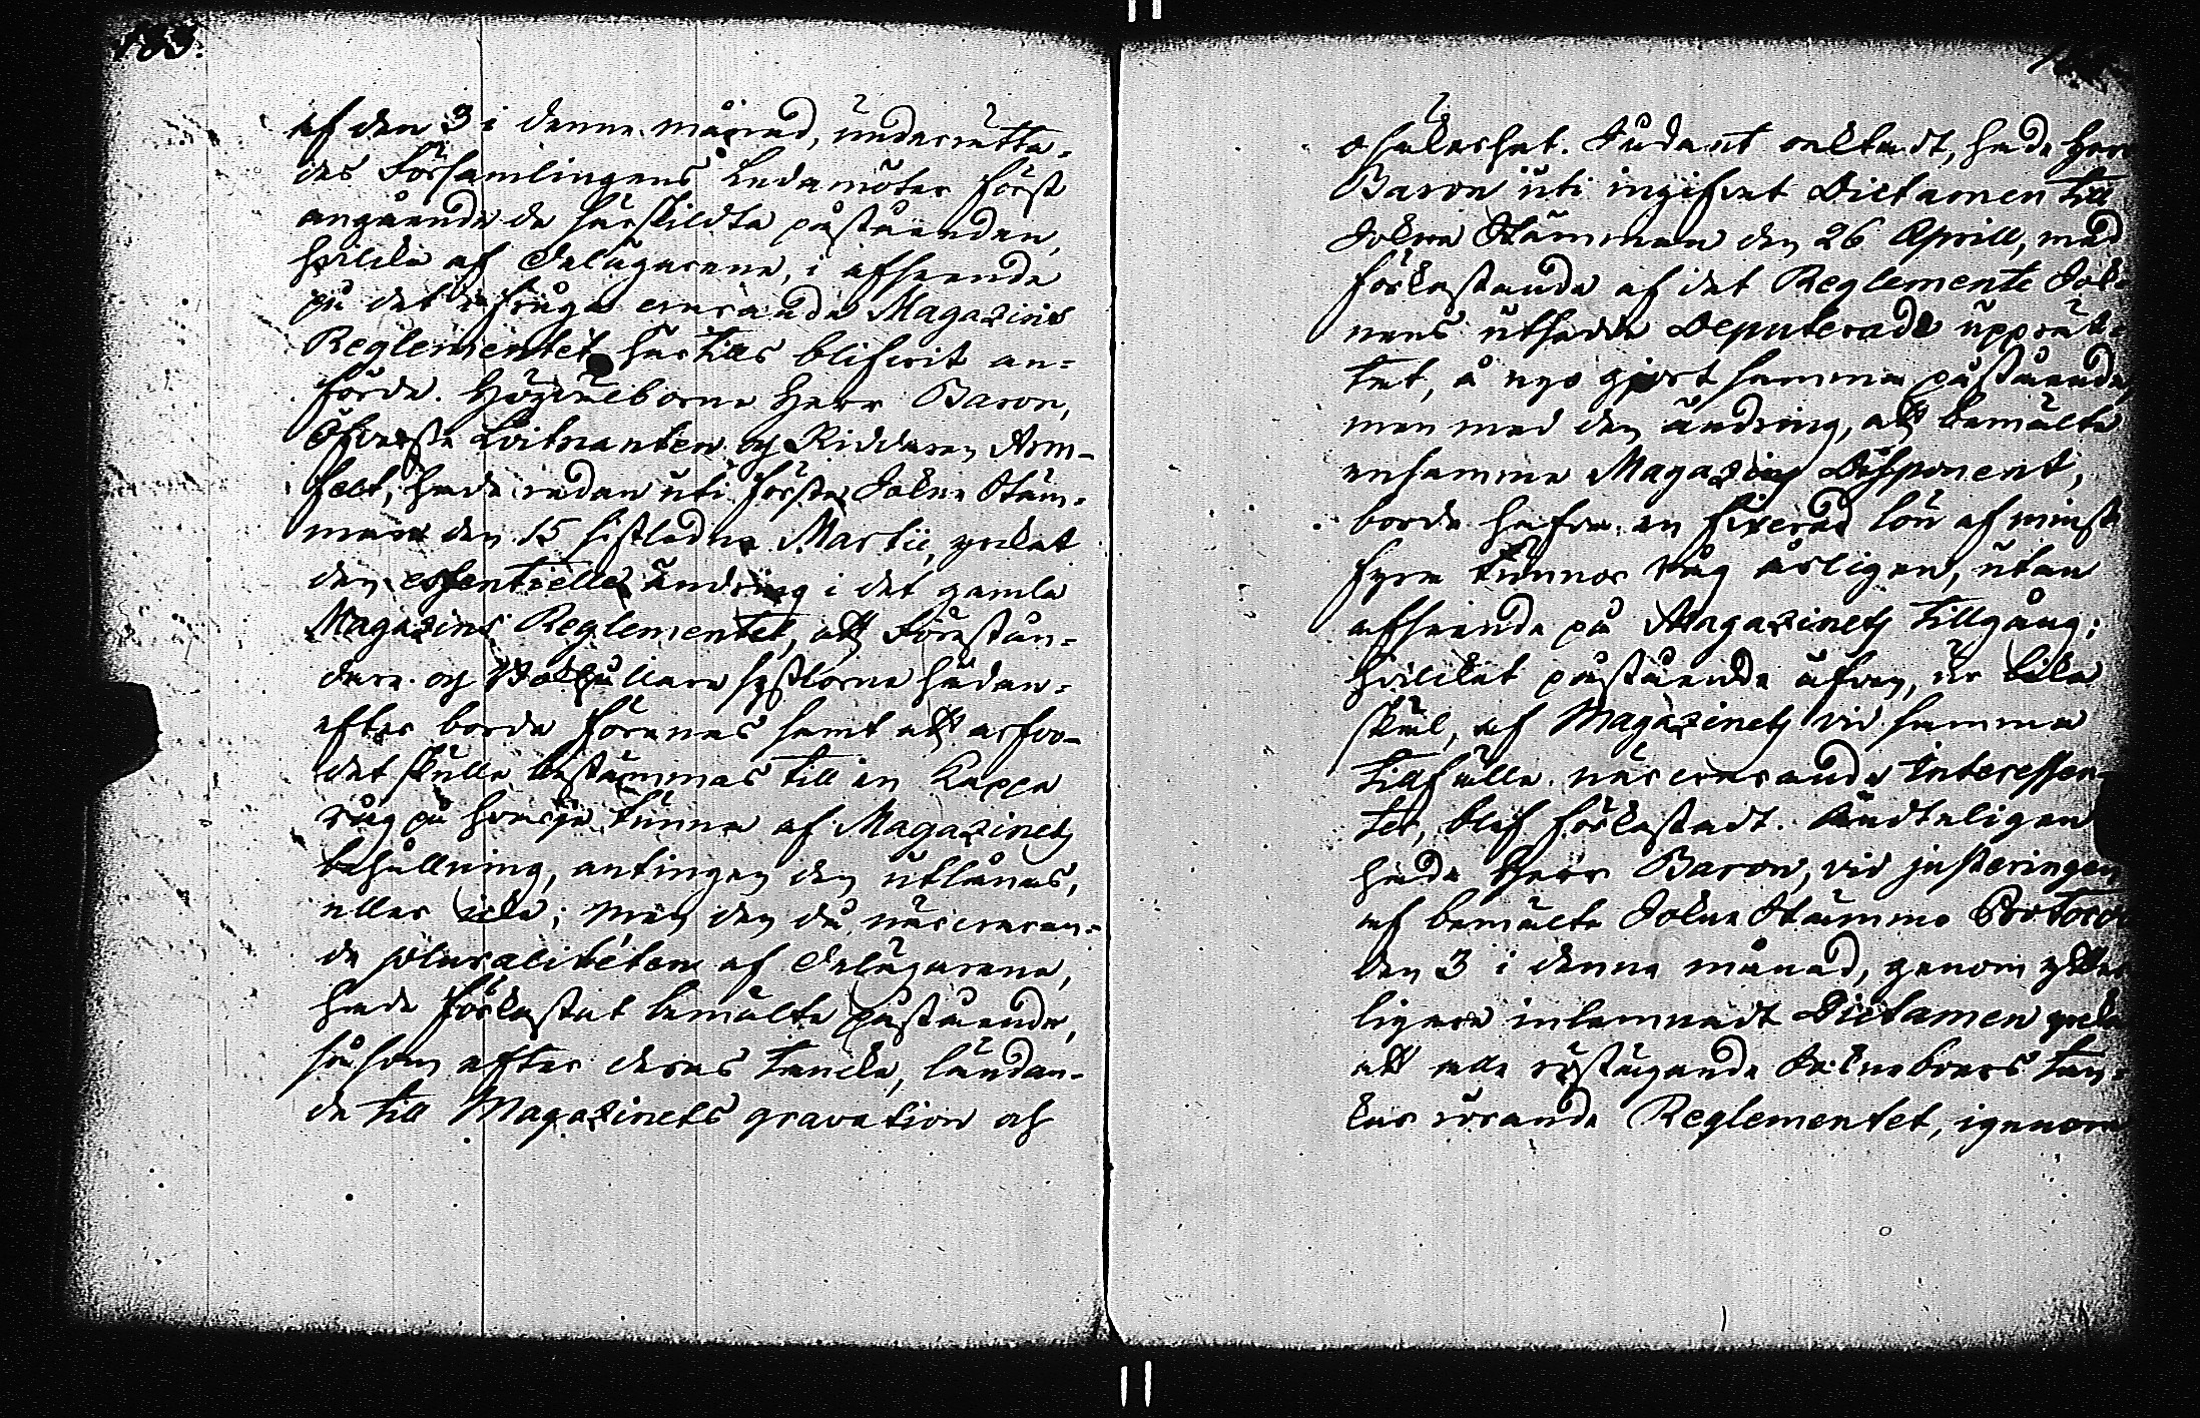 183.
af den 3 i denne månad, underrätta-
des Församlingens Ledamöter först
angående de särskildta påståenden,
hvilka af Delägarene, i afseende
på det i fråga varande Magazins
Reglementet härtills blifvit an-
förde. Högvälborne Herr Baron,
Öfverste Löitnanten och Riddaren Arm-
felt, hade redan uti första Sokne Stäm-
man den 15 sistledne Martii, yrkat
den essentiella ändring i det gamla
Magazins Reglementet, att Förestån-
dare och Bokhållare sysslorne hädan-
efter borde förenas samt att arfvo-
det skulle bestämmas till en Kappa
råg på hvarje tunna af Magazinets
behållning, antingen den utlånas,
eller icke; men den då närvaran-
de pluraliteten af Delägarena,
hade förkastat bemälte påstående,
såsom efter deras tanka, ländan-
de till Magazinets gravation och
osäkerhet. Sådant oaktadt, hade Herr
Baron uti ingifvet Dictamen till
Sokne Stämman den 26 Aprill, med
förkastande af det Reglemente Sok-
nens utsedde Deputerade upprät-
tat, å nyo gjort samma påstående,
men med den ändring, att bemälte
ensamme Magazins Disponent,
borde hafva en fixerad lön af minst
fyra tunnor råg årligen, utan
afseende på Magazinets tillgång;
hvilket påstående äfven, av lika
skäl, af Magazinets vid samma
tillfälle närvarande Interessen-
ter, blef förkastadt. Ändteligen
hade Herr Baron, vid justeringen
af bemälte Sokne Stämmo Protocoll
den 3 i denne månad, genom ytter-
ligare inlemnadt Dictamen yrkat
att alla röstägande Sokneboers tan-
kar rörande Reglementet, igenom